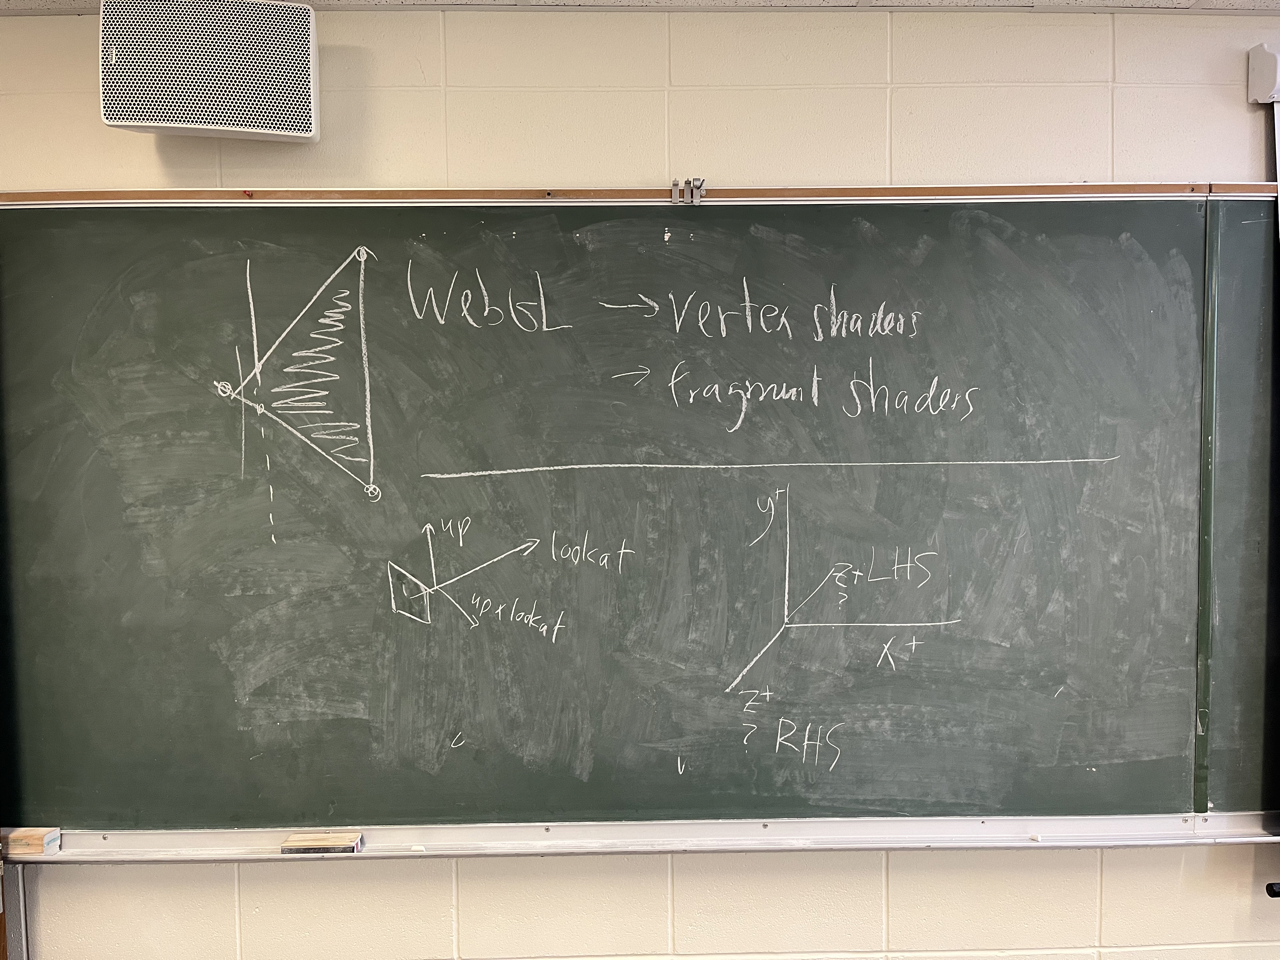 WebGL → vertex shaders
→ fragment shaders
up
lookat
up x lookat
y+
z+ LHS
?
x+
z+
? RHS